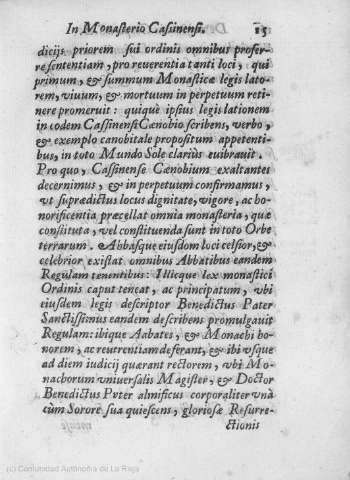 In Monasterio Cassinensi. 15
dicijs priorem sui ordinis omnibus profer-
re sententiam, pro reverentia tanti loci, qui
primum, & summum Monasticæ legis lato-
rem, viuum, & mortuum in perpetuum reti-
nere promeruit: quiquè ipsius legis lationem
in eodem Cassinensi Cænobio scribens, verbo,
& exemplo canobitale propositum appetenti-
bus, in toto Mundo Sole clariùs vibrauit.
Pro quo, Cassinense Cænobium exaltantes
decernimus, & in perpetuum confirmamus,
vt supredictus locus dignitate, vigore, ac ho-
norificentia præcellat omnia monasteria, quæ
constituta, vel constituenda sunt in toto Orbe
terrarum. Abbasque eiusdom loci celsior, &
celebrior existat omnibus Abbatibus eandem
Regulam tenentibus: Illicque lex monastici
Ordinis caput teneat, ac principatum, vbi
eiusdem legis descriptor Benedictus Pater
Sanctissimus eandem describens promulgauit
Regulam: ibique Aabates, & Monachi ho-
norem, ac reurentiam deferant, & ibi vsque
ad diem iudicij quærant rectorem, vbi Mo-
nachorum vniuersalis Magister, & Doctor
Benedictus Pater almificus corporaliter vnà
cùm Sorore sua quiescens, gloriosæ Resurre-
ctionis
(c) Comunidad Autónoma de La Rioja